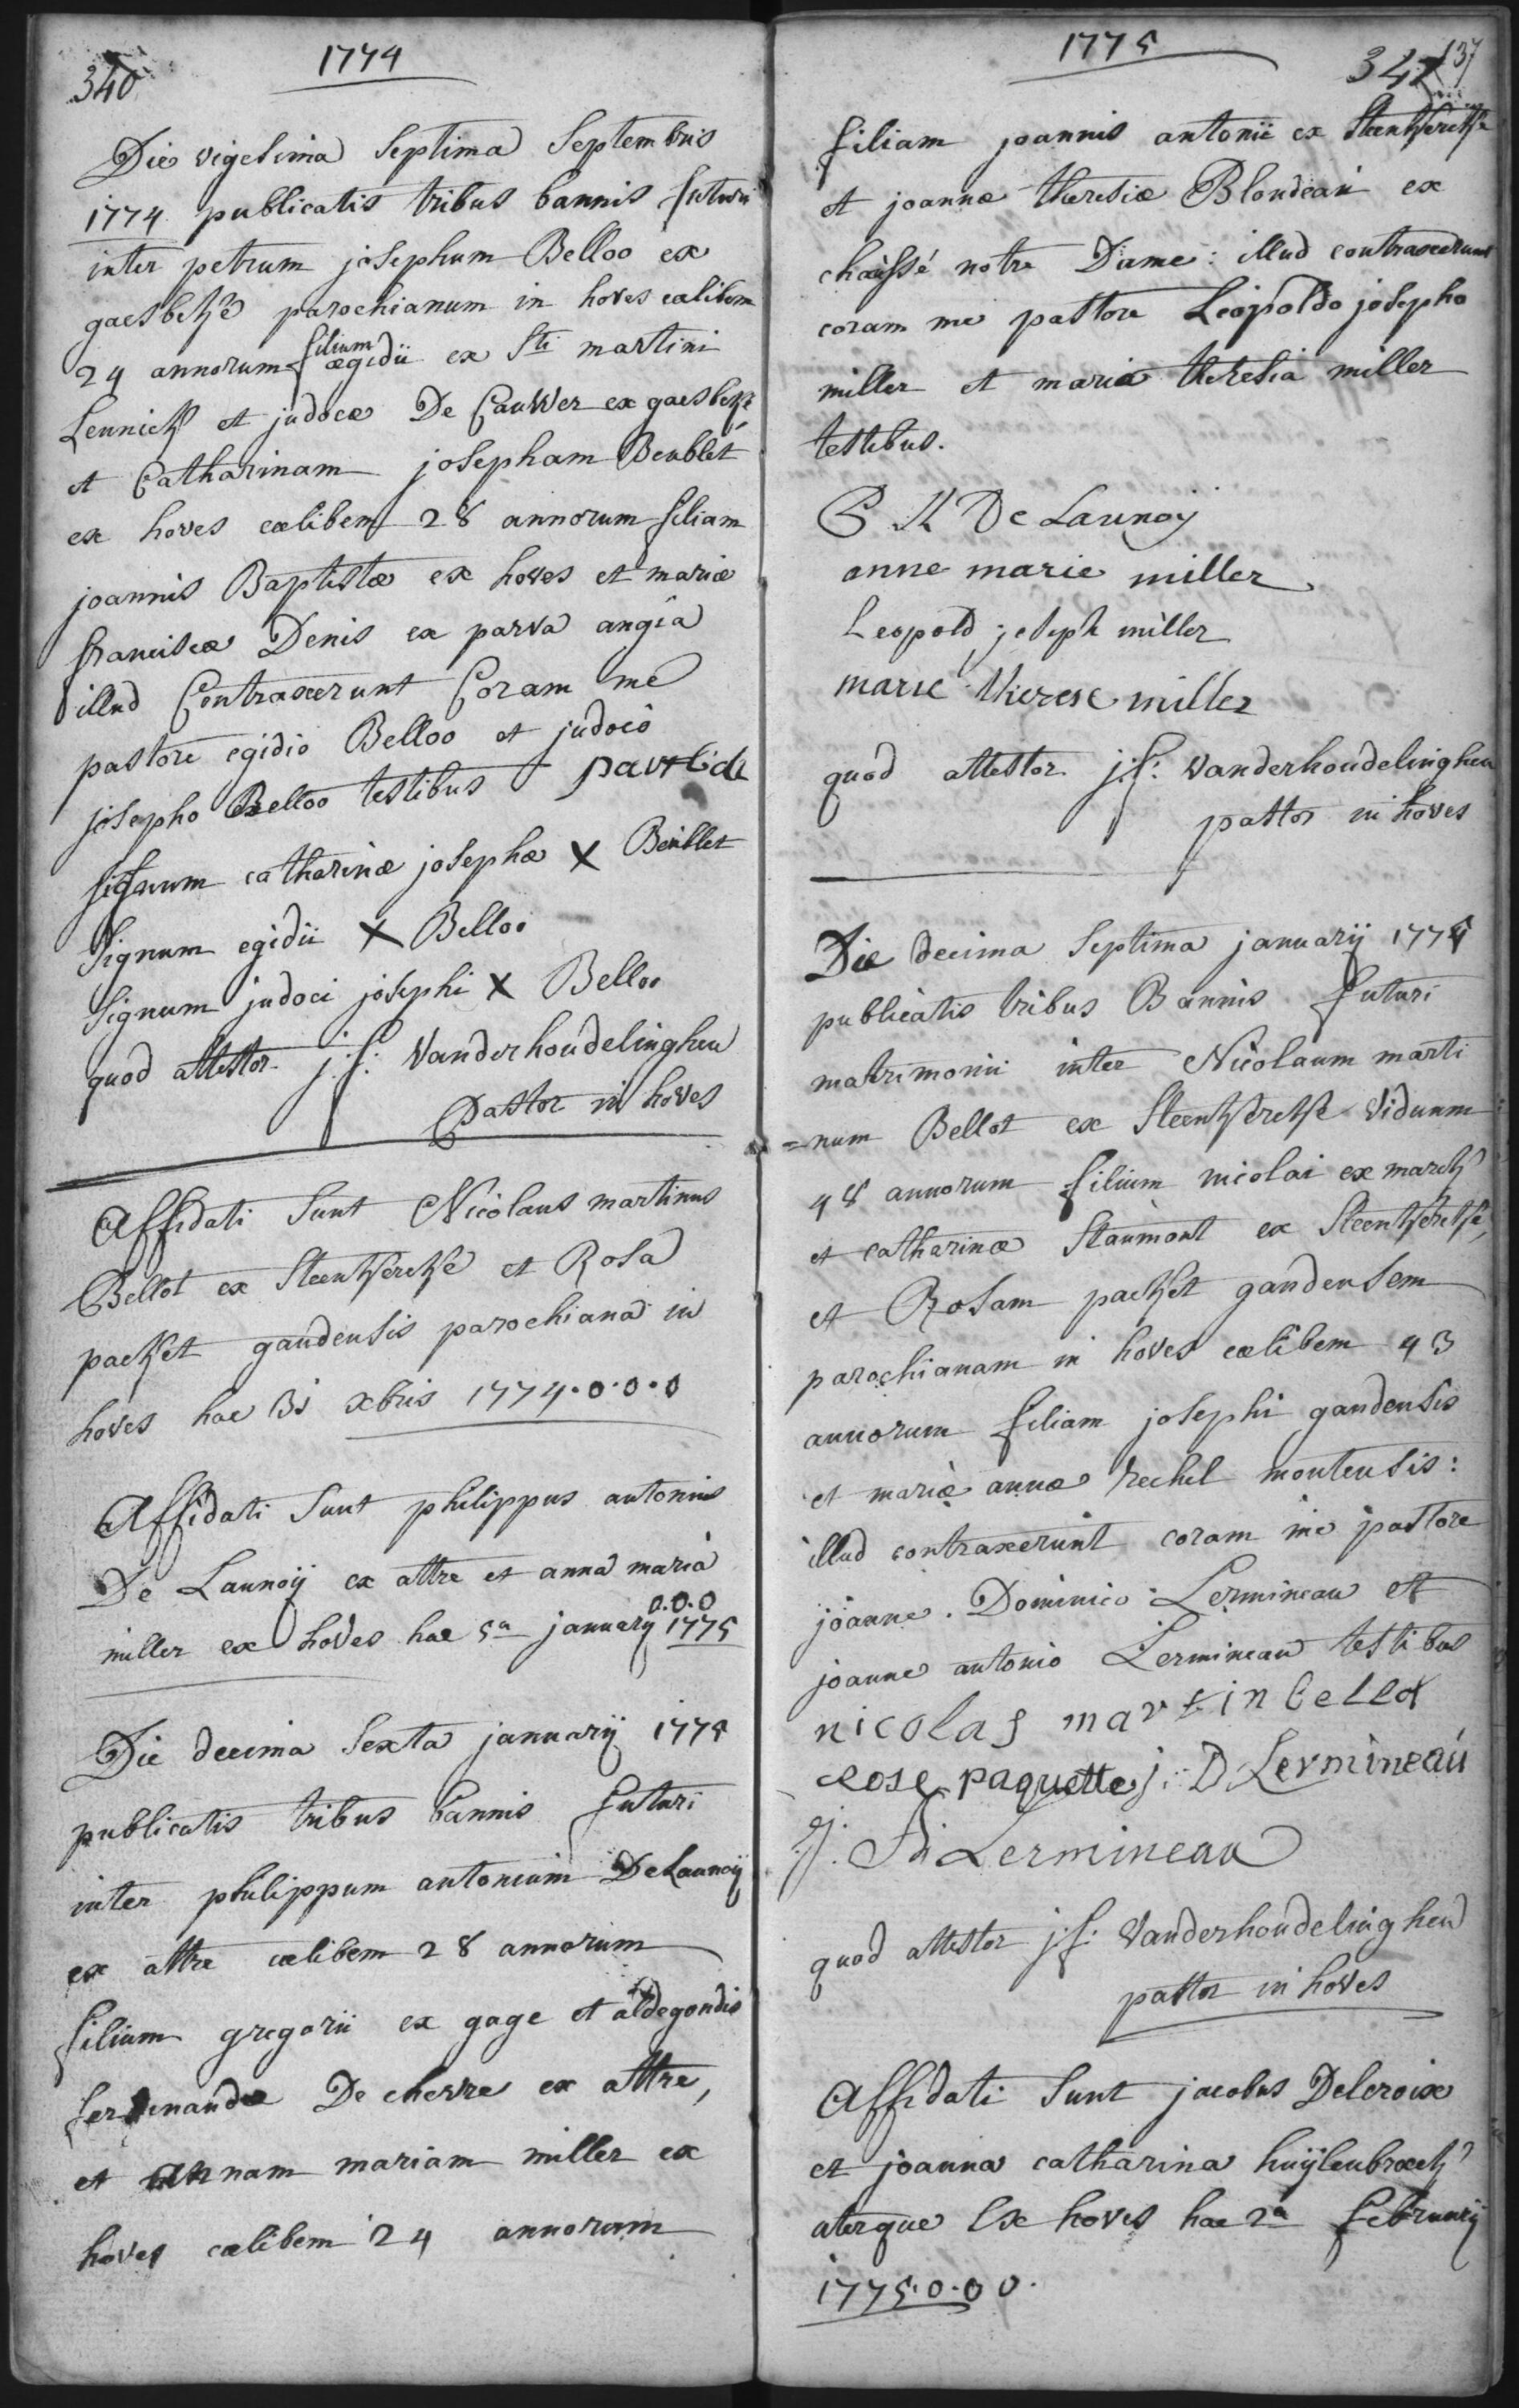 340
1774
Die vigesima Septima Septembris
1774 publicatis tribus bannis futuri
inter petrum josephum Belloo ex
gaesbeke parochianum in hoves cælibem
24 annorum filium ægidii ex Sti martini
Lennick et judocæ De Cauwer ex gaesbeke
et Catharinam josepham Beublet
ex hoves cælibem 28 annorum filiam
joannis Baptistæ ex hoves et mariæ
franciscæ Denis ex parva angia
illud Contraxerunt Coram me
pastore egidio Belloo et judoco
josepho Belloo testibus
signum catharinæ josephæ X Beublet
Signum egidii X Belloo
Signum judoci josephi X Belloo
quod attestor j: f: Vanderhoudelinghen
Pastor in hoves
Affidati Sunt Nicolaus martinus
Bellot ex Steenkercke et Rosa
packet gandensis parochiana in
hoves hac 31 xbris 1774.0.0.0
Affidati Sunt philippus antonius
De Launoij ex attre et anna maria
0.0.0
miller ex hoves hac 5a januarij 1775
Die decima Sexta januarij 1775
publicatis tribus bannis futuri
inter philippum antonium DeLaunoij
ex attre cælibem 28 annorum
filium gregorii ex gage et aldegondis
ferdinandæ De cherve ex attre,
et annam mariam miller ex
hoves cælibem 24 annorum
1775
341
137
filiam joannis antonii ex Steenkercke
et joannæ theresiæ Blondeau ex
chaussé notre Dame: illud contraxerunt
coram me pastore Leopoldo josepho
miller et maria theresia miller
testibus.
De Launoy
anne marie miller
Leopold joseph miller
marie therese miller
quod attestor j: f: Vanderhoudelinghen
pastor in hoves
Die decima Septima januarij 1775
publicatis tribus Bannis futuri
matrimonii inter Nicolaum marti
=num Bellot ex Steenkercke Viduum
48 annorum filium nicolai ex marck
et catharinæ Staumont ex Steenkercke,
et Rosam packet gandensem
parochianam in hoves cælibem 43
annorum filiam josephi gandensis
et mariæ annæ rechel montensis:
illud contraxerunt coram me pastore
joanne. Dominico Lermineau et
joanne antonio Lermineau testibus
nicolas martin bellot
rose paquette j: D Lermineau
j. A: Lermineau
quod attestor j: f: Vanderhoudelinghen
pastor in hoves
Affidati Sunt jacobus Delcroix
et joanna catharina huijlenbroeck
uterque Ex hoves hac 2a februarij
1775.0.0 0.